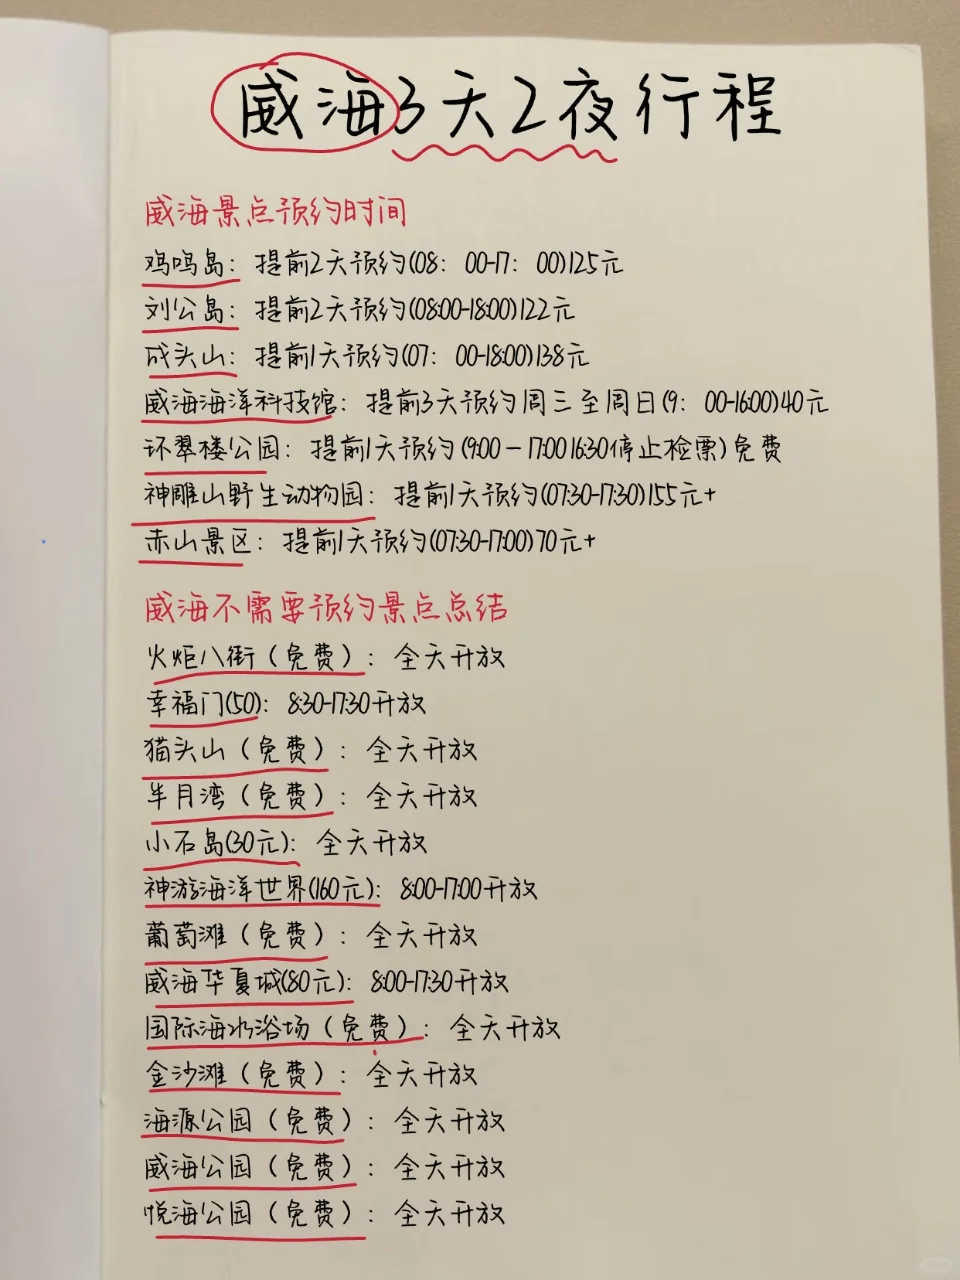 威海3天2夜行程
威海景点预约时间
鸡鸣岛：提前2天预约(08：00-17：00)125元
刘公岛：提前2天预约(08:00-18:00)122元
成头山：提前1天预约(07：00-18:00)138元
威海海洋科技馆：提前3天预约周三至周日(9：00-16:00)40元
环翠楼公园：提前1天预约(9:00-17:00 16:30停止检票)免费
神雕山野生动物园：提前1天预约(07:30-17:30)155元+
赤山景区：提前1天预约(07:30-17:00)70元+
威海不需要预约景点总结
火炬八街（免费）：全天开放
幸福门(50)：8:30-17:30开放
猫头山（免费）：全天开放
半月湾（免费）：全天开放
小石岛(30元)：全天开放
神游海洋世界(160元)：8:00-17:00开放
葡萄滩（免费）：全天开放
威海华夏城(80元)：8:00-17:30开放
国际海水浴场（免费）：全天开放
金沙滩（免费）：全天开放
海源公园（免费）：全天开放
威海公园（免费）：全天开放
悦海公园（免费）：全天开放